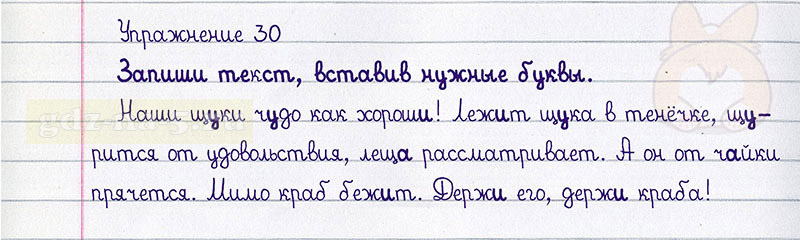 Упражнение 30
Запиши текст, вставив нужные буквы.
Наши щуки чудо как хороши! Лежит щука в тенёчке, щу-
рится от удовольствия, леща рассматривает. А он от чайки
прячется. Мимо краб бежит. Держи его, держи краба!